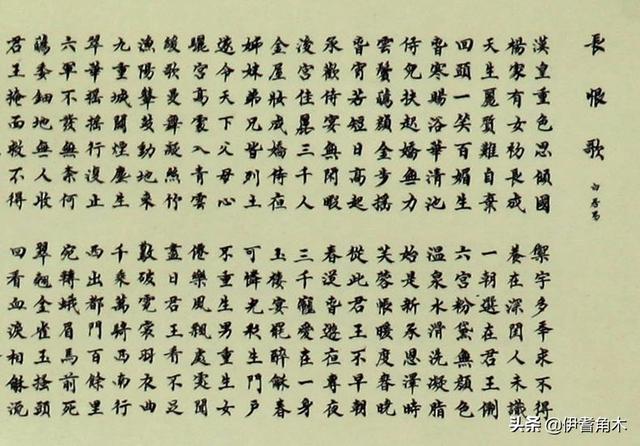 長恨歌
白居易
漢皇重色思傾國 御宇多秊求不得
楊家有女初長成 養在深閨人未識
天生麗質難自棄 一朝選在君王側
回頭一笑百媚生 六宮粉黛無顏色
旾寒賜浴華清池 溫泉水滑洗凝脂
侍兒扶起嬌無力 始是新承恩澤時
雲鬢蘤顏金步搖 芙蓉帳暖度春
旾宵苦短日高起 從此君王不早朝
承歡侍宴無閑暇 春從旾遊亱專夜
後宮佳麗三千人 三千寵愛在一身
金屋妝成嬌侍夜 玉樓宴罷醉龢春
姊妹弟兄皆列土 可憐光彩生門戶
遂令天下父母心 不重生男重生女
驪宮高處入青雲 僊樂風飄處處聞
緩歌曼舞凝絲竹 盡日君王看不足
漁陽鼙鼓動地來 驚破霓裳羽衣曲
九重城闕煙塵生 千乘萬騎西南行
翠華搖搖行復止 西出都門百餘里
六軍不發無奈何 宛轉蛾眉馬前死
蘤委鈿地無人收 翠翹金雀玉搔頭
君王掩面救不得 回看血淚相龢流
头条 @伊訔角木